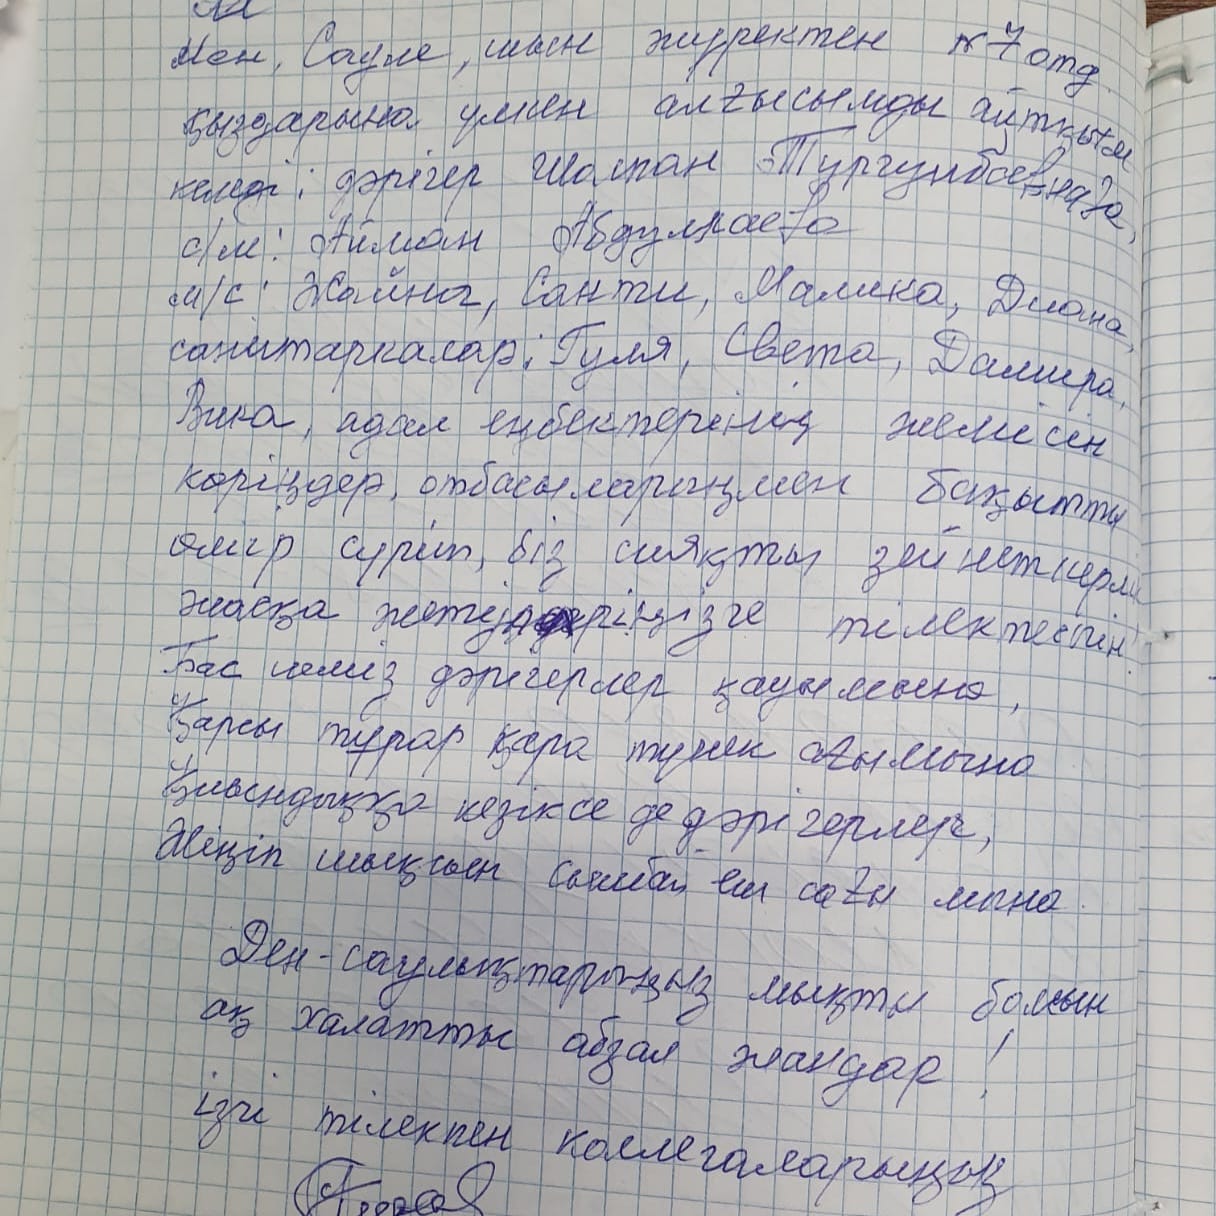 Мен, Сауле, шын жүректен №7 отд.
қыздарына үлкен алғысымды айтқым
келеді: дәрігер Шолпан Тургунбаевнаға,
с/м: Айман Абдулраевға
м/с: Жайна, Санти, Малика, Диана,
санитаркалар: Гуля, Света, Дамира,
Вика, адал еңбектеріңнің жемісін
көріңдер, отбасыларыңмен бақытты
өмір сүріп, біз сияқты зейнеткерлік
жасқа жетулеріңізге тілектеспін!
Бас иеміз дәрігерлер қауымына,
Қарсы тұрар қара түнек ағымына
Қиындыққа кезіксе де дәрігерлер,
Жеңіп шықсын сынбай еш сағы мына
Ден-саулықтарыңыз мықты болсын
ақ халатты абзал жандар!
Ізгі тілекпен коллегаларыңыз